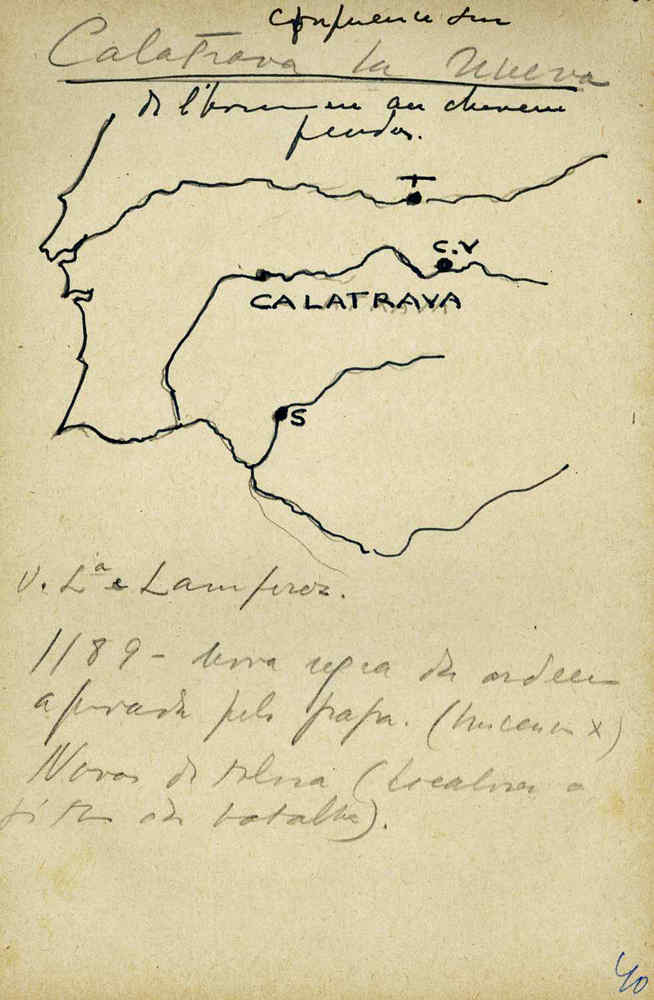 conference sur
Calatrava la Nueva
de l'homme au cheveux
fendos.
T
C.V
CALATRAVA
S
V. Lª e Lamperez.
1189 - nova regra da ordem
aprovada pelo papa. (
Navas de Tolosa (localisar o
sitio da batalha).
40